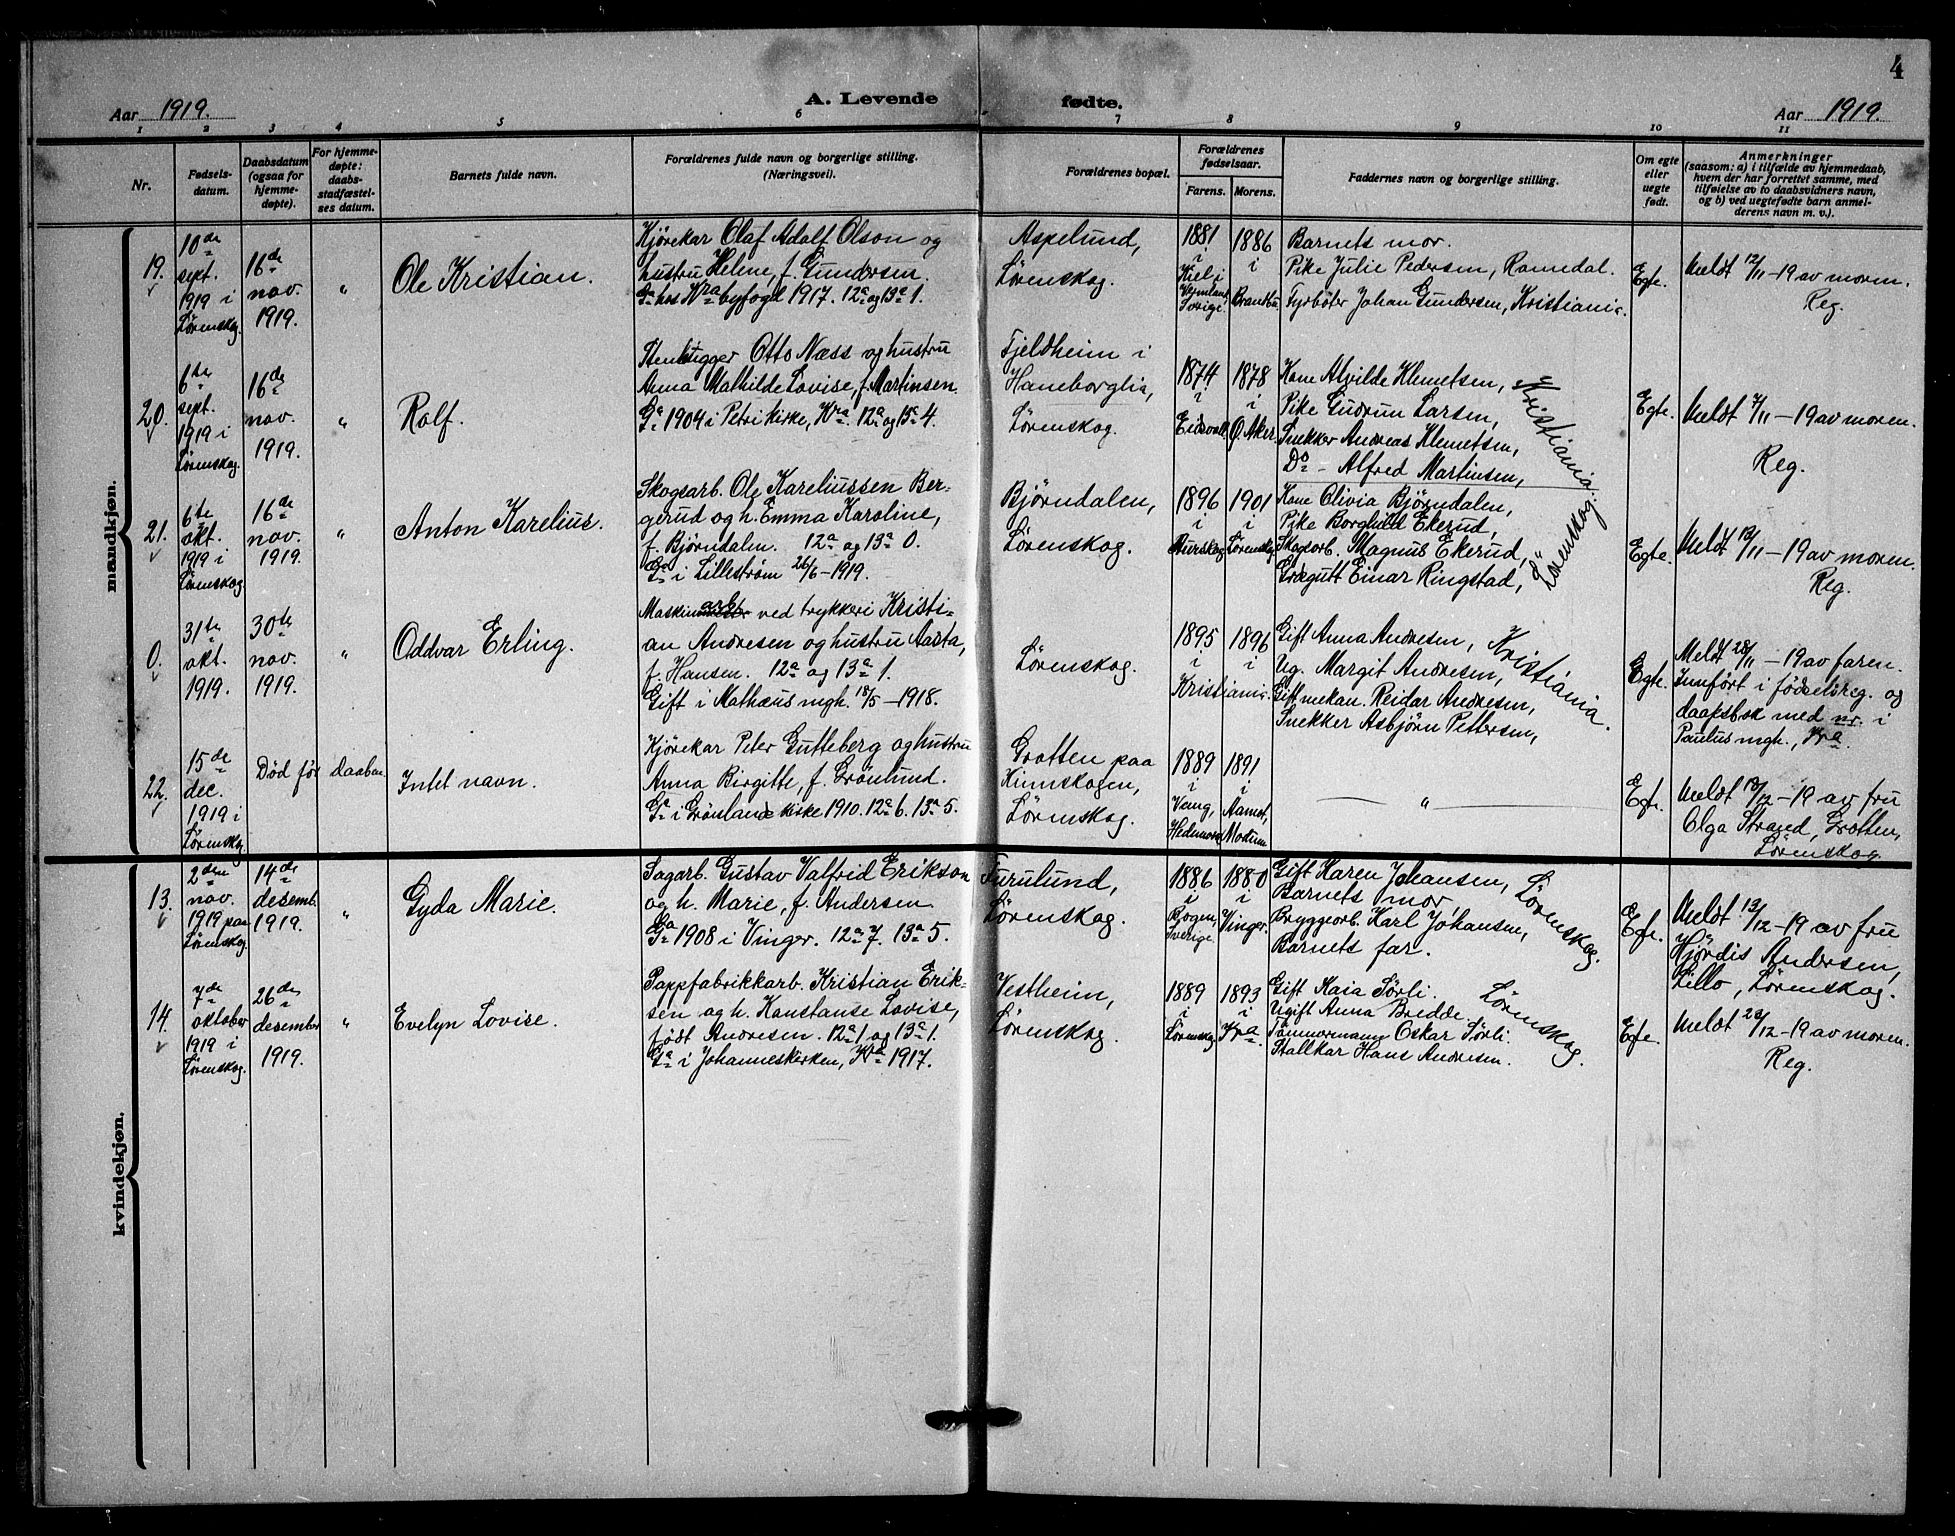 4
Aar 1919.
A. Levende fødte.
Aar 1919.
1 2 3 4 5 6 7 8 9 10 11
Nr.
Fødsels-
datum.
Daabsdatum
(ogsaa for
hjemme-
døpte).
For hjemme-
døpte:
daabs-
stadfæstel-
ses datum.
Barnets fulde navn.
Forældrenes fulde navn og borgerlige stilling.
(Næringsvei).
Forældrenes bopæl.
Forældrenes
fødselsaar.
Farens. Morens.
Faddernes navn og borgerlige stilling.
Om egte
eller
uegte
født.
Anmerkninger
(saasom: a) i tilfælde av hjemmedaab,
hvem der har forrettet samme, med
tilføielse av to daabsvidners navn,
og b) ved uegtefødte barn anmel-
derens navn m. v.).
mandkjøn.
19.
10de
sept.
1919 i
Lørenskog.
16de
nov.
1919.
"
Ole Kristian.
Kjørekar Olaf Adolf Olson og
hustru Helene, f. Gundersen.
Ga hos Kra byfogd 1917. 12a og 13a 1.
Aspelund,
Lørenskog.
1881
i
Sverige.
1886
i
Brandbu.
Barnets mor.
Pike Julie Pedersen, Romedal.
Fyrbøter Johan Gundersen, Kristiania.
Egte.
Meldt 12/11 – 19 av moren.
Reg.
20.
6te
sept.
1919 i
Lørenskog.
16de
nov.
1919.
"
Rolf.
Stenhugger Otto Næss og hustru
Anna Mathilde Lovise, f. Martinsen.
Ga 1904 i Petri kirke, Kra. 12a og 13a 4.
Fjeldheim i
Haneborglia,
Lørenskog.
1874
i
Eidsvoll.
1878
i
Ø. Aker.
Kone Alvilde Klemetsen,
Pike Gudrun Larsen,
Snekker Andreas Klemetsen,
Do – Alfred Martinsen,
Kristiania.
Egte.
Meldt 7/11 – 19 av moren.
Reg.
21.
6te
okt.
1919 i
Lørenskog.
16de
nov.
1919.
"
Anton Karelius.
Skogsarb. Ole Kareliussen Ber-
gerud og h. Emma Karoline,
f. Bjørndalen. 12a og 13a 0.
Ga i Lillestrøm 26/6 – 1919.
Bjørndalen,
Lørenskog.
1896
i
Aurskog.
1901
i
Lørenskog.
Kone Olivia Bjørndalen,
Pike Borghild Ekerud,
Skogsarb. Magnus Ekerud,
Einar Ringstad,
Lørenskog.
Egte.
Meldt 13/11 – 19 av moren.
Reg.
0.
31te
okt.
1919.
30te
nov.
1919.
"
Oddvar Erling.
Maskinarb. ved trykkeri Kristi-
an Andresen og hustru Aasta,
f. Hansen. 12a og 13a 1.
Gift i Mathæus mgh. 18/5 – 1918.
Lørenskog.
1895 1896
i i
Kristiania.
Gift Anna Andresen,
Ug. Margit Andresen,
Gift mekan. Reidar Andresen,
Snekker Asbjørn Pettersen,
Kristiania.
Egte.
Meldt 28/11 – 19 av faren.
Innført i fødselsreg. og
daapsbok med nr. i
Paulus mgh., Kra.
22.
15de
dec.
1919 i
Lørenskog.
Død før daaben.
Intet navn.
Kjørekar Peter Gutteberg og hustru
Anna Birgitte, f. Grönlund.
Ga i Grønlands kirke 1910. 12a 6. 13a 5.
Grotten paa
Kinnskogen,
Lørenskog.
1889
i
Vang,
Hedemark.
1891
i
Aamot,
Modum.
— " —
Egte.
Meldt 18/12 – 19 av fru
Olga Strand, Grotten,
Lørenskog.
kvindekjøn.
13.
2den
nov.
1919 paa
Lørenskog.
14de
desemb.
1919.
"
Gyda Marie.
Sagarb. Gustav Valfrid Erikson
og h. Marie, f. Andersen
Ga 1908 i Vinger. 12a 7. 13a 5.
Furulund,
Lørenskog.
1886
i
Bogen,
Sverige.
1880
i
Vinger.
Gift Karen Johansen,
Barnets mor,
Bryggeorb. Karl Johansen,
Barnets far.
Lørenskog.
Egte.
Meldt 13/12 – 19 av fru
Hjördis Andersen,
Lillo, Lørenskog.
14.
7de
oktober
1919 i
Lørenskog.
26de
desember
1919.
"
Evelyn Lovise.
Pappfabrikkarb. Kristian Erik-
sen og h. Konstanse Lovise,
født Andresen. 12a 1 og 13a 1.
Ga i Johanneskirken, Kra 1917.
Vestheim,
Lørenskog.
1889
i
Lørenskog.
1893
i
Kra.
Gift Kaia Sørli.
Ugift Anna Bredde.
Tömmermann Oskar Sørli.
Stallkar Hans Andresen.
Lørenskog.
Egte.
Meldt 20/12 – 19 av moren.
Reg.